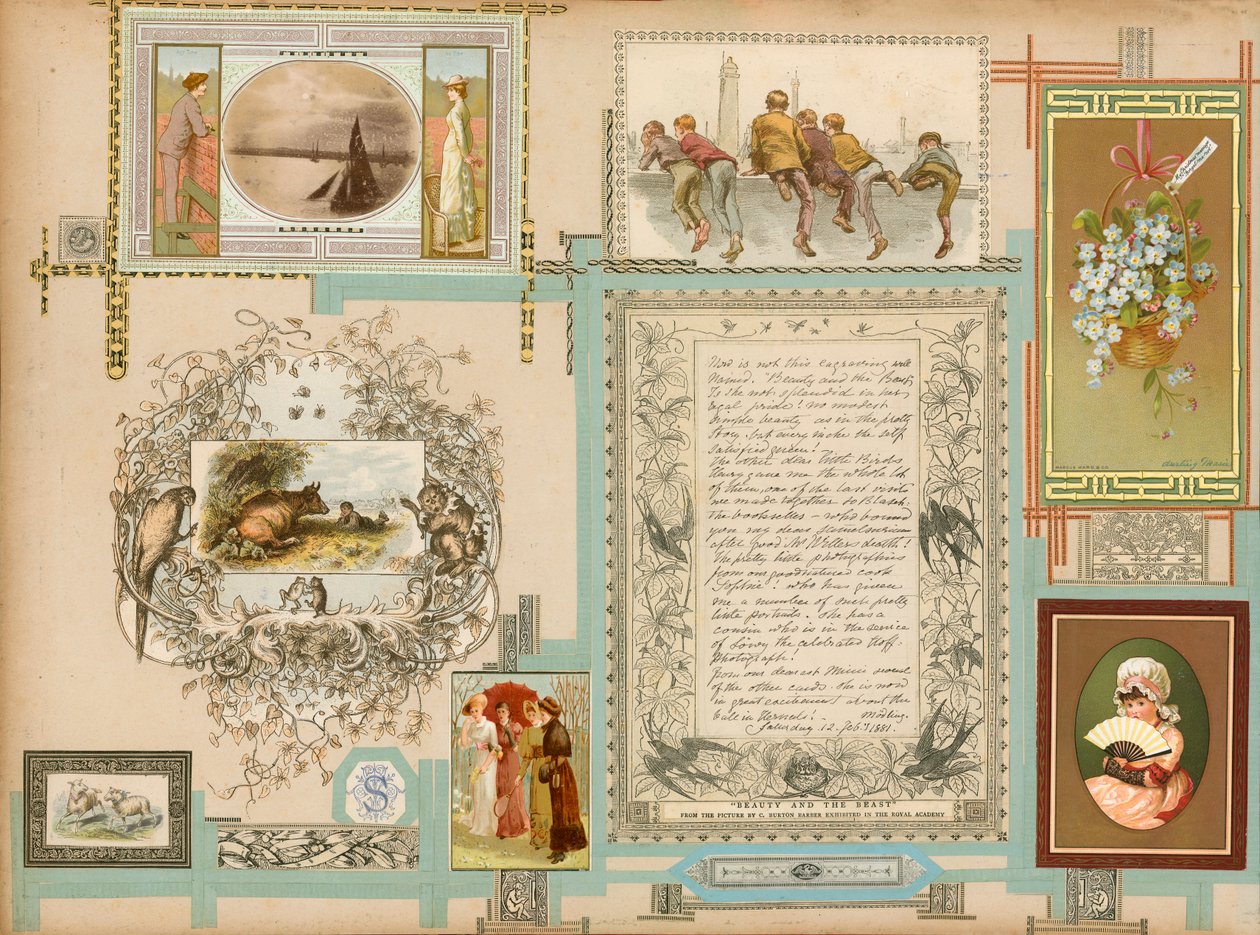 Now is not this engraving well
named. Beauty and the Beast
Is she not splendid in her
regal pride! no modest
simple beauty as in the pretty
Story, but every inche the self
satisfied queen!
The other dear little Birds
Henry gave me the whole lot
of them, one of the last visits
we made together to
the bookseller - who bound
you my dear
after good Mr death!
The pretty little photographies
from our goodnatured cook
Sophie! who has given
me a number of such pretty
little portraits. She has a
cousin who is in the service
of Löwy the celebrated Hof-
Photograph!
From our dearest Mimi several
of the other cards. She is now
in great excitement about the
Ball in
Saturday 12. Feb. 1881.
"BEAUTY AND THE BEAST"
FROM THE PICTURE BY C. BURTON BARBER EXHIBITED IN THE ROYAL ACADEMY
MARCUS WARD & CO
darling
S